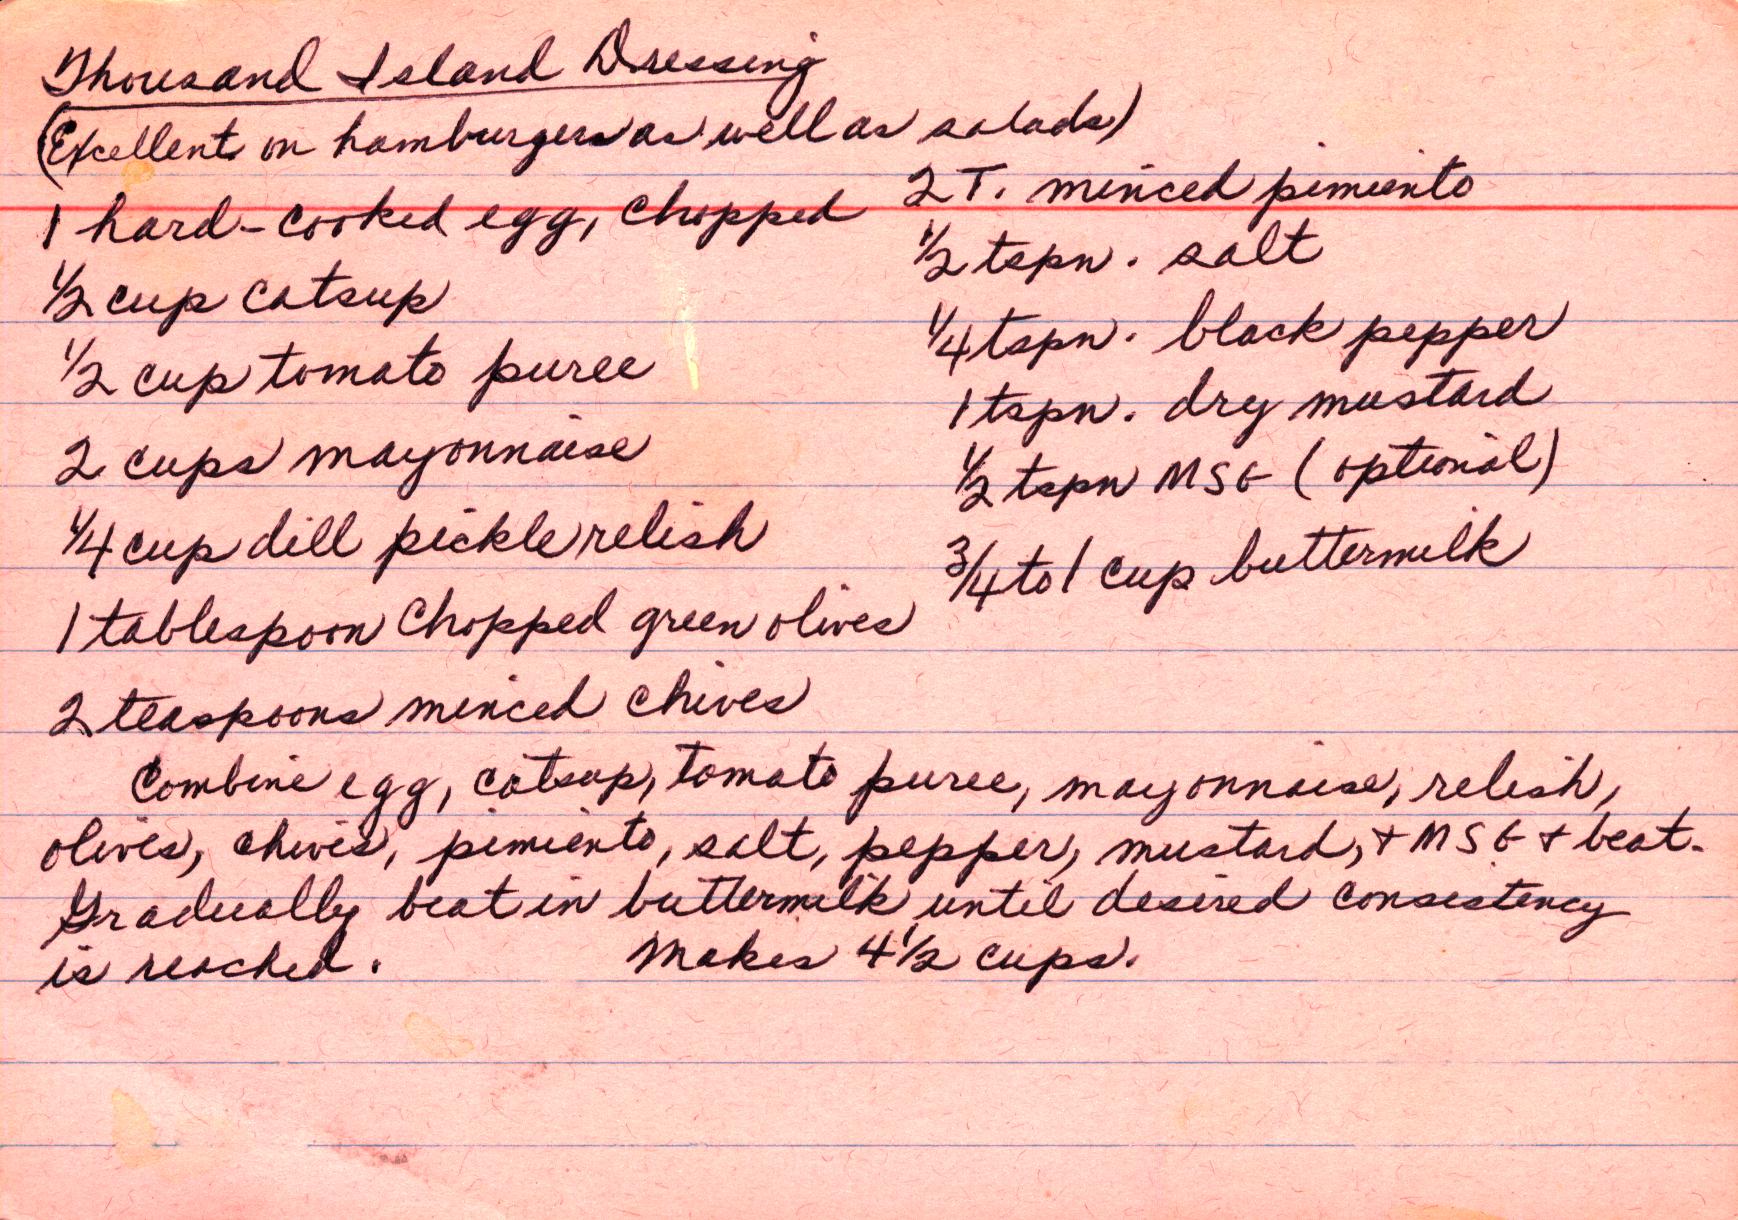 Thousand Island Dressing
(Excellent on hamburgers as well as salads)
1 hard-cooked egg, chopped
1/2 cup catsup
1/2 cup tomato puree
2 cups mayonnaise
1/4 cup dill pickle relish
1 tablespoon chopped green olives
2 teaspoons minced chives
2 T. minced pimiento
1/2 tspn. salt
1/4 tspn. black pepper
1 tspn. dry mustard
1/2 tspn MSG (optional)
3/4 to 1 cup buttermilk
Combine egg, catsup, tomato puree, mayonnaise, relish,
olives, chives, pimiento, salt, pepper, mustard, + MSG + beat.
Gradually beat in buttermilk until desired consistency
is reached. Makes 4 1/2 cups.